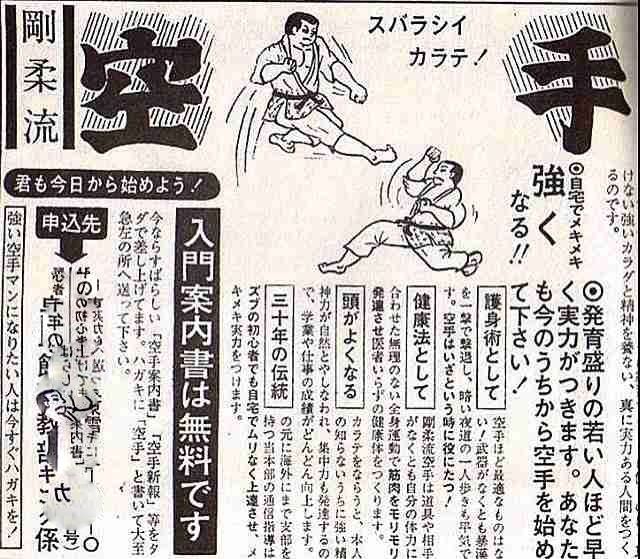 剛柔流
空手
スバラシイ
カラテ！
君も今日から始めよう！
けない強いカラダと精神を養ない、真に実力ある人間をつく
るのです。
◎自宅でメキメキ
強く
なる!!
◎発育盛りの若い人ほど早
く実力がつきます。あなた
も今のうちから空手を始め
て下さい！
護身術として
空手ほど最適なものはな
い！武器がなくとも暴漢
を一撃で撃退し、暗い夜道の一人歩きも平気で
す。空手はいざという時に役にたつ！
健康法として
剛柔流空手は道具や相手
がなくとも自分の体力に
合わせた無理のない全身運動で筋肉をモリモリ
発達させ医者いらずの健康体をつくります。
頭がよくなる
カラテをならうと、本人
の知らないうちに強い精
神力が自然とやしなわれ、集中力も発達するの
で、学業や仕事の成績がどんどん向上します。
三十年の伝統
の元に海外にまで支部を
持つ当本部の通信指導は
ズブの初心者でも自宅でムリなく上達させ、メ
キメキ実力をつけます。
入門案内書は無料です
今ならすばらしい「空手案内書」「空手新報」等をタ
ダで差し上げてます。ハガキに「空手」と書いて大至
急左の所へ送って下さい。
申込先
係
強い空手マンになりたい人は今すぐハガキを！